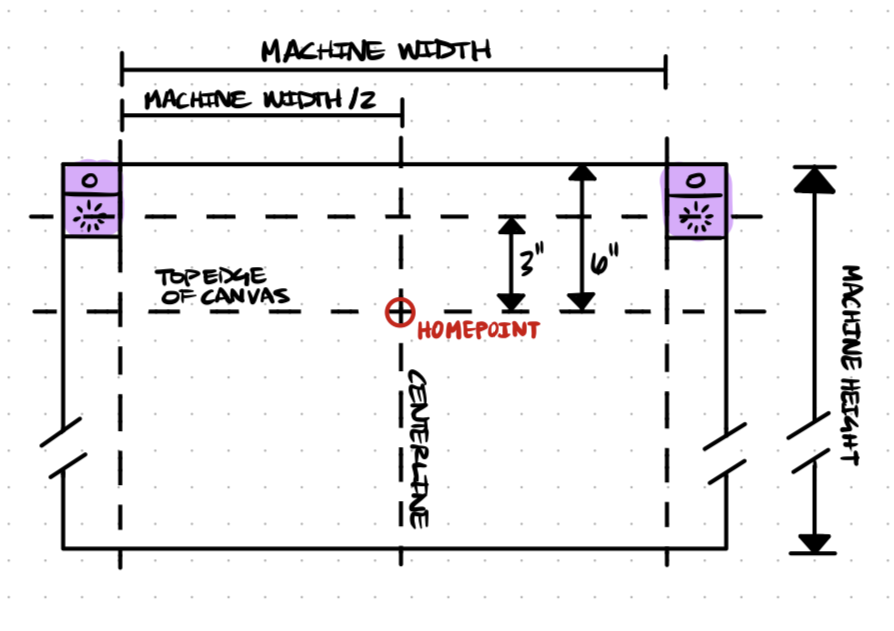 MACHINE WIDTH
MACHINE WIDTH/2
O
O
3"
6"
TOP EDGE
OF CANVAS
HOMEPOINT
CENTERLINE
MACHINE HEIGHT